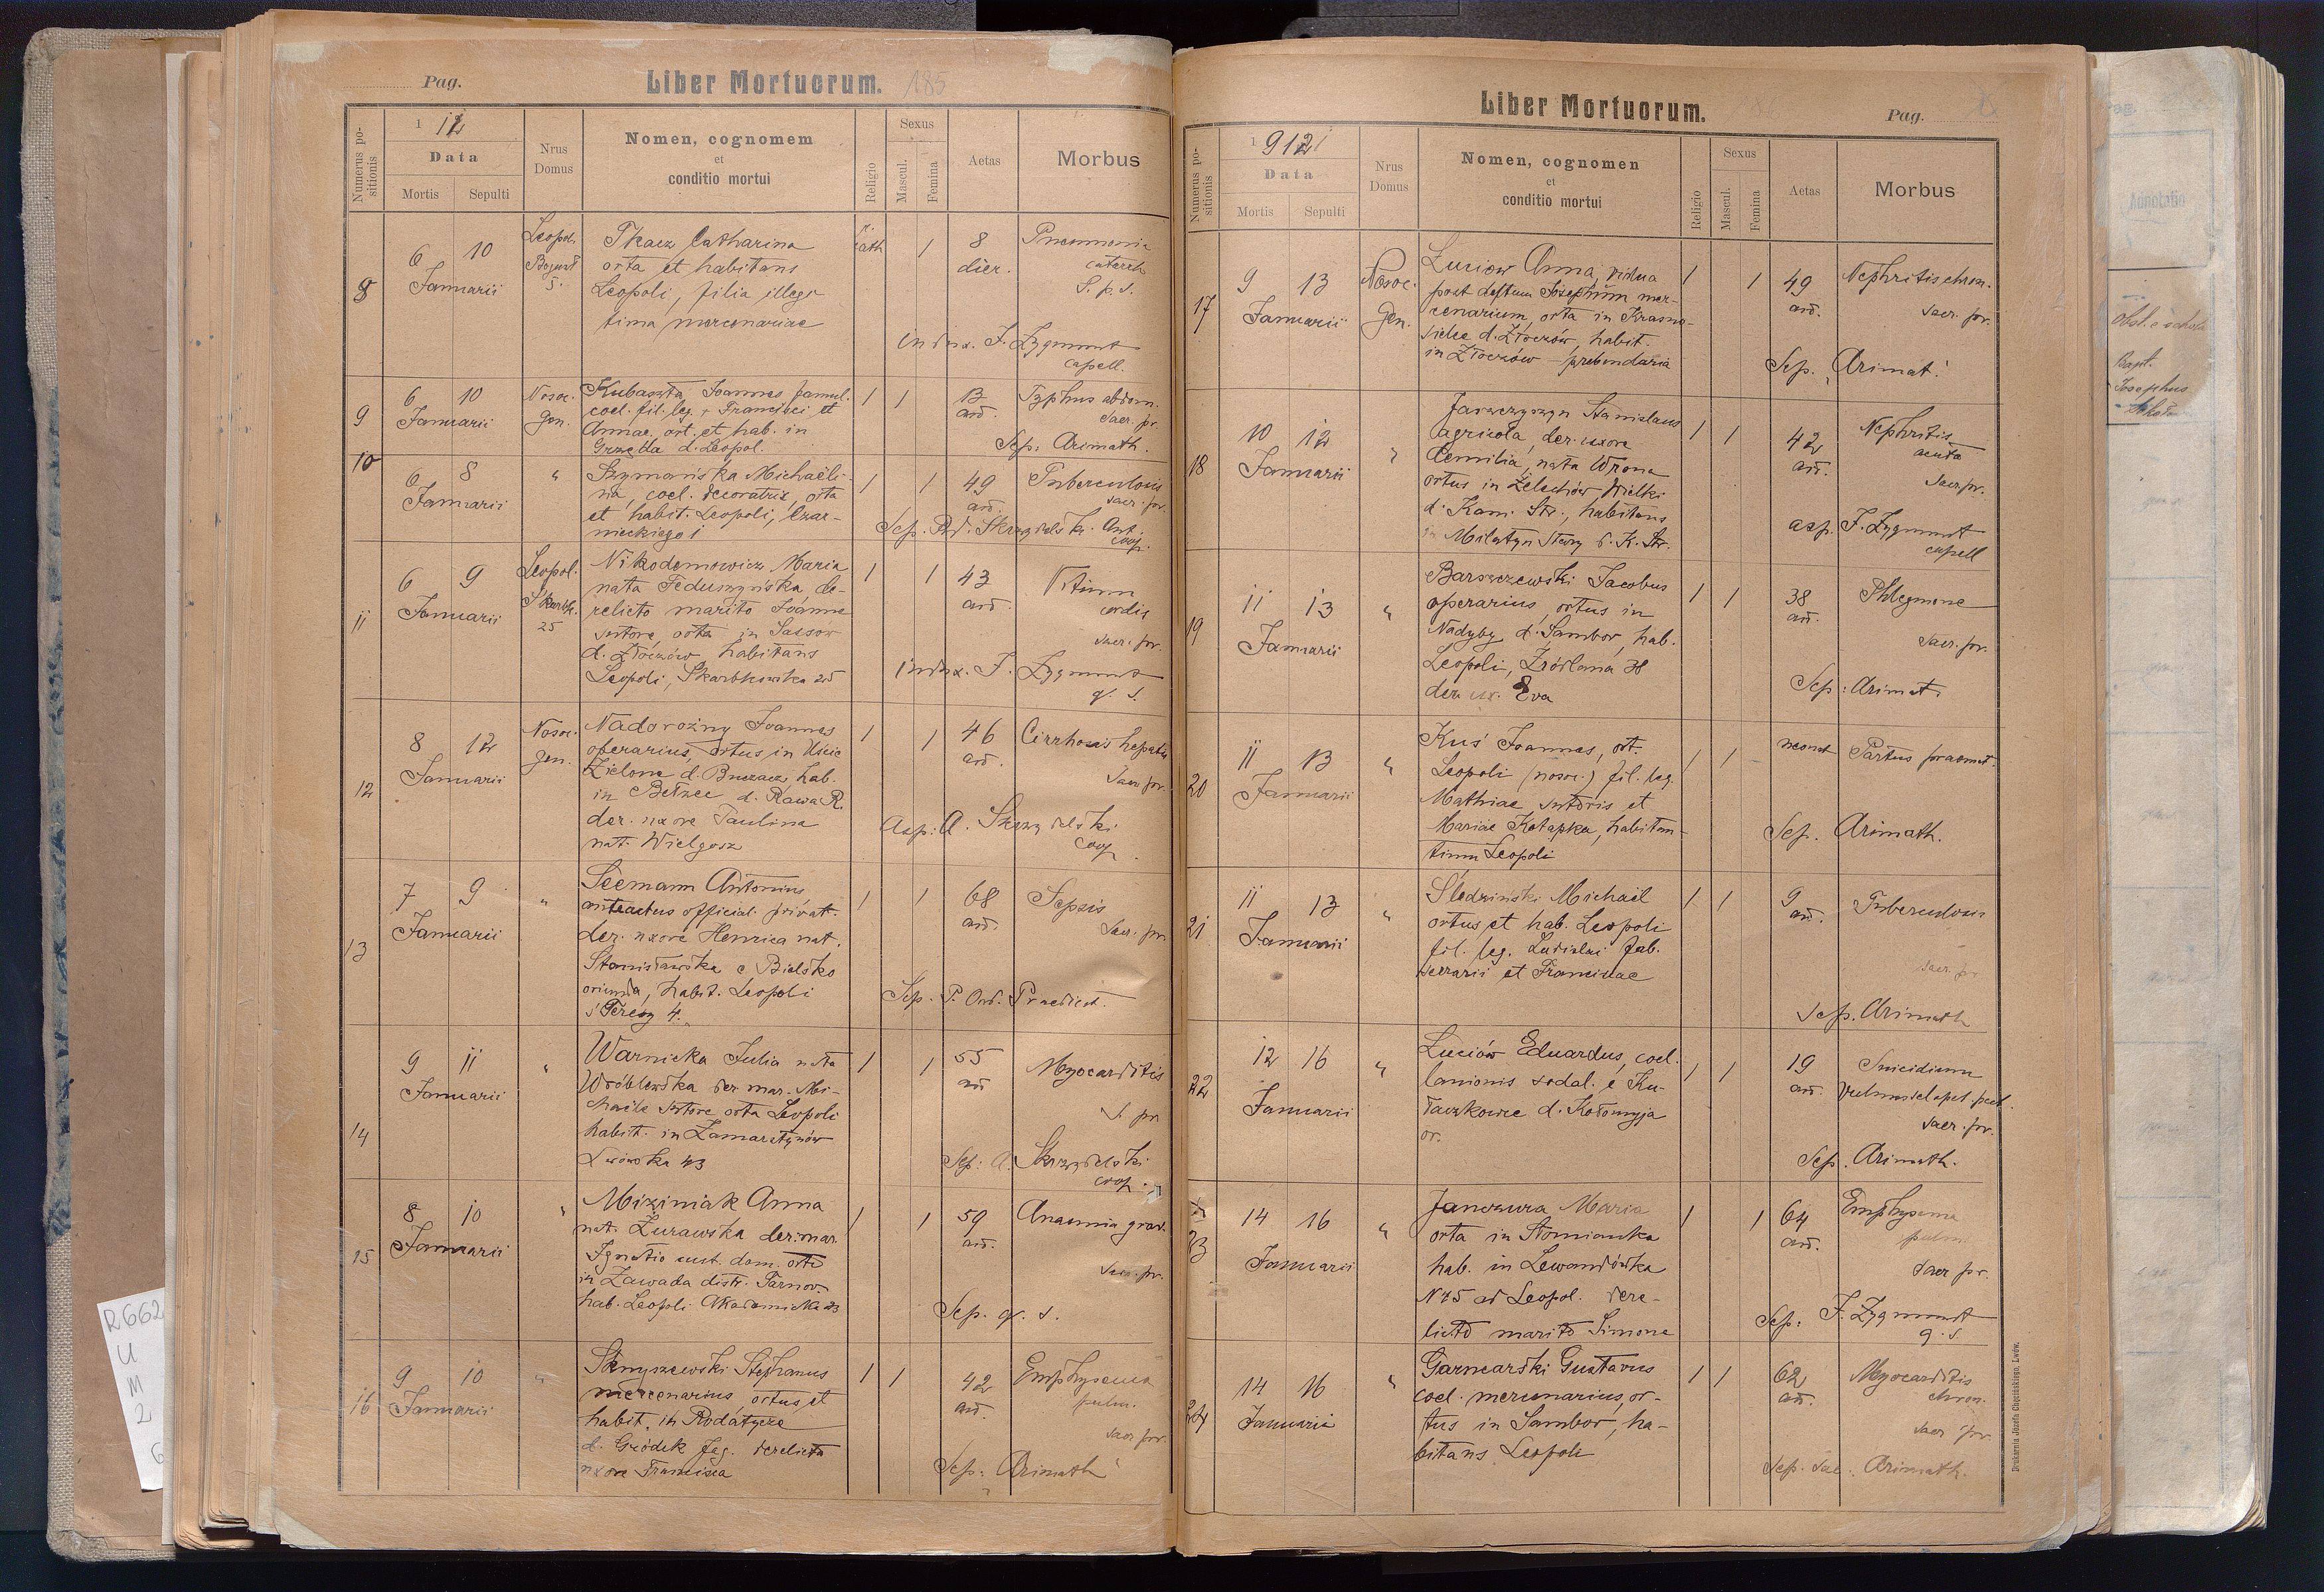 Pag.
Liber Mortuorum. 185
Numerus positionis
1 12
Data
Mortis Sepulti
Nrus Domus
Nomen, cognomem
et
conditio mortui
Religio
Sexus
Mascul. Femina
Aetas
Morbus
8
6 10
Januarii
Leopol.
5.
Tkacz Catharina
orta et habitans
Leopoli, filia illegi
tima mercenariae
cath 1
8
dier.
Pneumonia
catarrh
S. p. s.
J. Zygmunt
capell.
9
6 10
Januarii
Nosoc.
gen.
Kubaszta Joannes famul.
coel. fil. leg. + Francisci et
Annae, ort. et hab. in
Grzęda d. Leopol.
1 1
13
an.
Typhus abdom.
Sacr. pr.
Sep: Arimath.
10
6 8
Januarii
"
Szymańska Michaëli-
na, coel. decoratrix, orta
et habit. Leopoli, Czar-
nieckiego 1
1 1
49
an.
Tuberculosis
sacr. pr.
Sep. Skrzydelski Ant.
coop.
11
6 9
Januarii
Leopol.
Skarbk.
25
Nikodemowicz Maria
nata Feduszyńska de-
relicto marito Joanne
sutore, orta in Sassów
d. Złoczów, habitans
Leopoli, Skarbkowska 25
1 1
43
an.
Vitium
cordis
sacr. pr.
J. Zygmunt
q. s.
12
8 12
Januarii
Nosoc.
gen.
Nadorożny Joannes
operarius, ortus in Uście
Zielone d. Buczacz, hab.
in Bełzec d. Rawa R.
der. uxore Paulina
nat. Wielgosz
1 1
46
an.
Cirrhosis hepatis
Sacr. pr.
Asp: A. Skrzydelski
coop.
13
7 9
Januarii
"
Seemann Antonius
anteactus official. privat.
der. uxore Henrica nat.
Stanisławska e Bielsko
oriunda, habit. Leopoli
ś Teresy 4.
1 1
68
an.
Sepsis
Sacr. pr.
Sep. P. Ord. Praedicat.
14
9 11
Januarii
"
Warnicka Julia nata
Wróblewska der. mar. Mi-
chaële sutore orta Leopoli
habit. in Zamarstynów
Lwowska 43
1 1
55
an
Myocarditis
S. pr.
Sep: A. Skrzydelski
coop.
15
8 10
Januarii
"
Miziniak Anna
nat. Żurawska der. mar.
Ignatio cust. dom. orta
in Zawada distr. Tarnow.
hab. Leopoli Akademicka 23
1 1
59
an.
Anaemia grav.
Sacr. pr.
Sep. q. s.
16
9 10
Januarii
"
Stephanus
mercenarius, ortus et
habit. in Rodatycze
d. Gródek Jag. derelicta
uxore Francisca
1 1
42
an.
Emphysema
pulm.
sacr. pr.
Sep: Arimath
Liber Mortuorum.
Pag.
Numerus positionis
1 912
Data
Mortis Sepulti
Nrus Domus
Nomen, cognomen
et
conditio mortui
Religio
Sexus
Mascul. Femina
Aetas
Morbus
17
9 13
Januarii
Nosoc.
Gen.
Łuciow Anna, vidua
post defunctum Josephum mer-
cenarium, orta in Krasno-
sielce d. Złoczów, habit.
in Złoczów - prebendaria
1 1
49
an.
Nephritis chron.
sacr. pr.
Sep. Arimat.
18
10 12
Januarii
"
Jaroszyszyn Stanislaus
agricola, der. uxore
Cemilia, nata Wrona
ortus in Żelechów Wielki
d. Kam. Str., habitans
in Milatyn Stary d. K. Str.
1 1
42
an.
Nephritis
acuta
Sacr. pr.
asp. J. Zygmunt
capell
19
11 13
Januarii
"
Barszczewski Jacobus
operarius, ortus in
Nadyby d. Sambor, hab.
Leopoli, Źródlana 38
der. ux. Eva
1 1
38
an.
Phlegmone
Sacr. pr.
Sep: Arimat.
20
11 13
Januarii
"
Kuś Joannes, ort.
Leopoli (nosoc.) fil. leg.
Mathiae, sutoris et
Mariae Kotapka, habitan-
tium Leopoli
1 1
neonat
Partus praemat.
Sep. Arimath.
21
11 13
Januarii
"
Śledziński Michaël
ortus et hab. Leopoli
fil. leg. Ladislai fab.
serrarii et Franciscae
1 1
9
an.
Tuberculosis
sacr. pr
Sep. Arimath
22
12 16
Januarii
"
Łuciów Eduardus, coel.
lanionis sodal. e Ku-
łaczkowce d. Kołomyja
or.
1 1
19
an.
Suicidium
Vulnus sclopet. pect.
Sacr. pr.
Sep. Arimath.
23
14 16
Januarii
"
Janczura Maria
orta in Słomianka
hab. in Lewandówka
N 75 ad Leopol. dere-
licto marito Simone
1 1
64
an.
Emphysema
pulm.
Sacr pr.
Sep: J. Zygmunt
q. s.
24
14 16
Januarii
"
Garncarski Gustavus
coel. mercenarius, or-
tus in Sambor, ha-
bitans Leopoli
1 1
62
an.
Myocarditis
chron.
Sacr pr.
Sep. Arimath.
Drukarnia Józefa Chęcińskiego, Lwów.
Annotatio
Bapt.
Josephus
R662
U
M
2
6